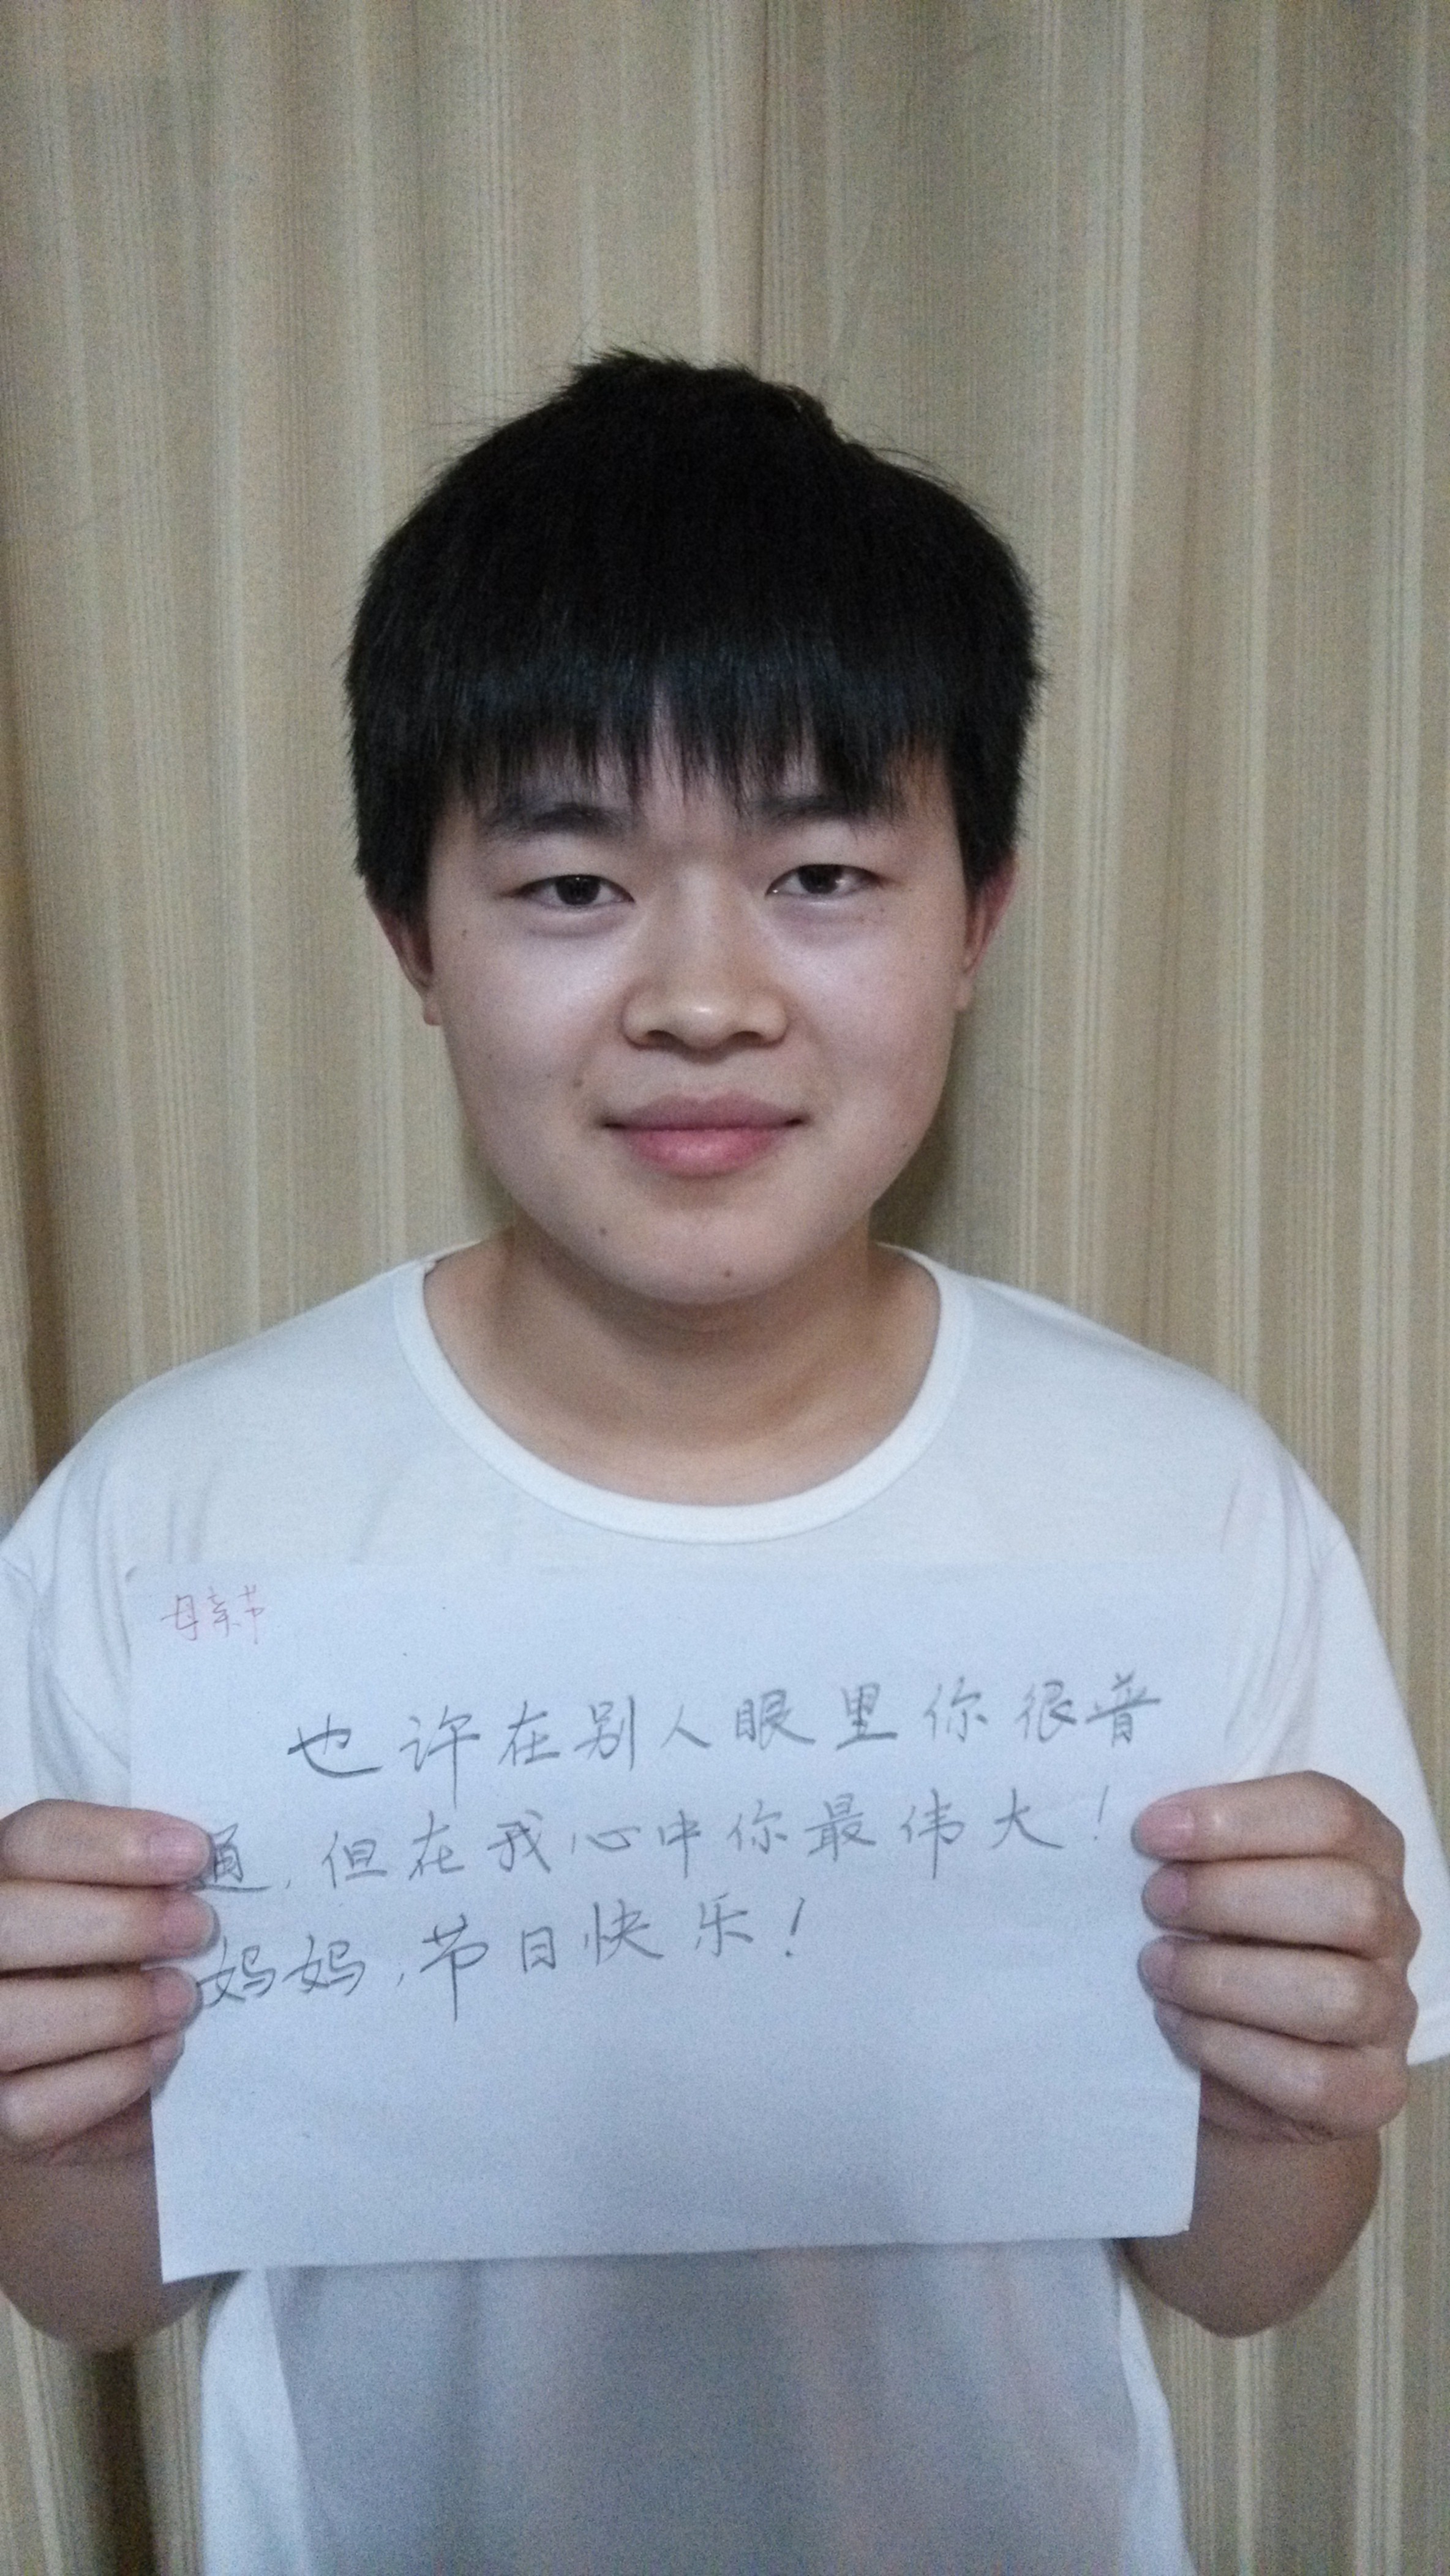 母亲节
也许在别人眼里你很普
通,但在我心中你最伟大!
妈妈,节日快乐!